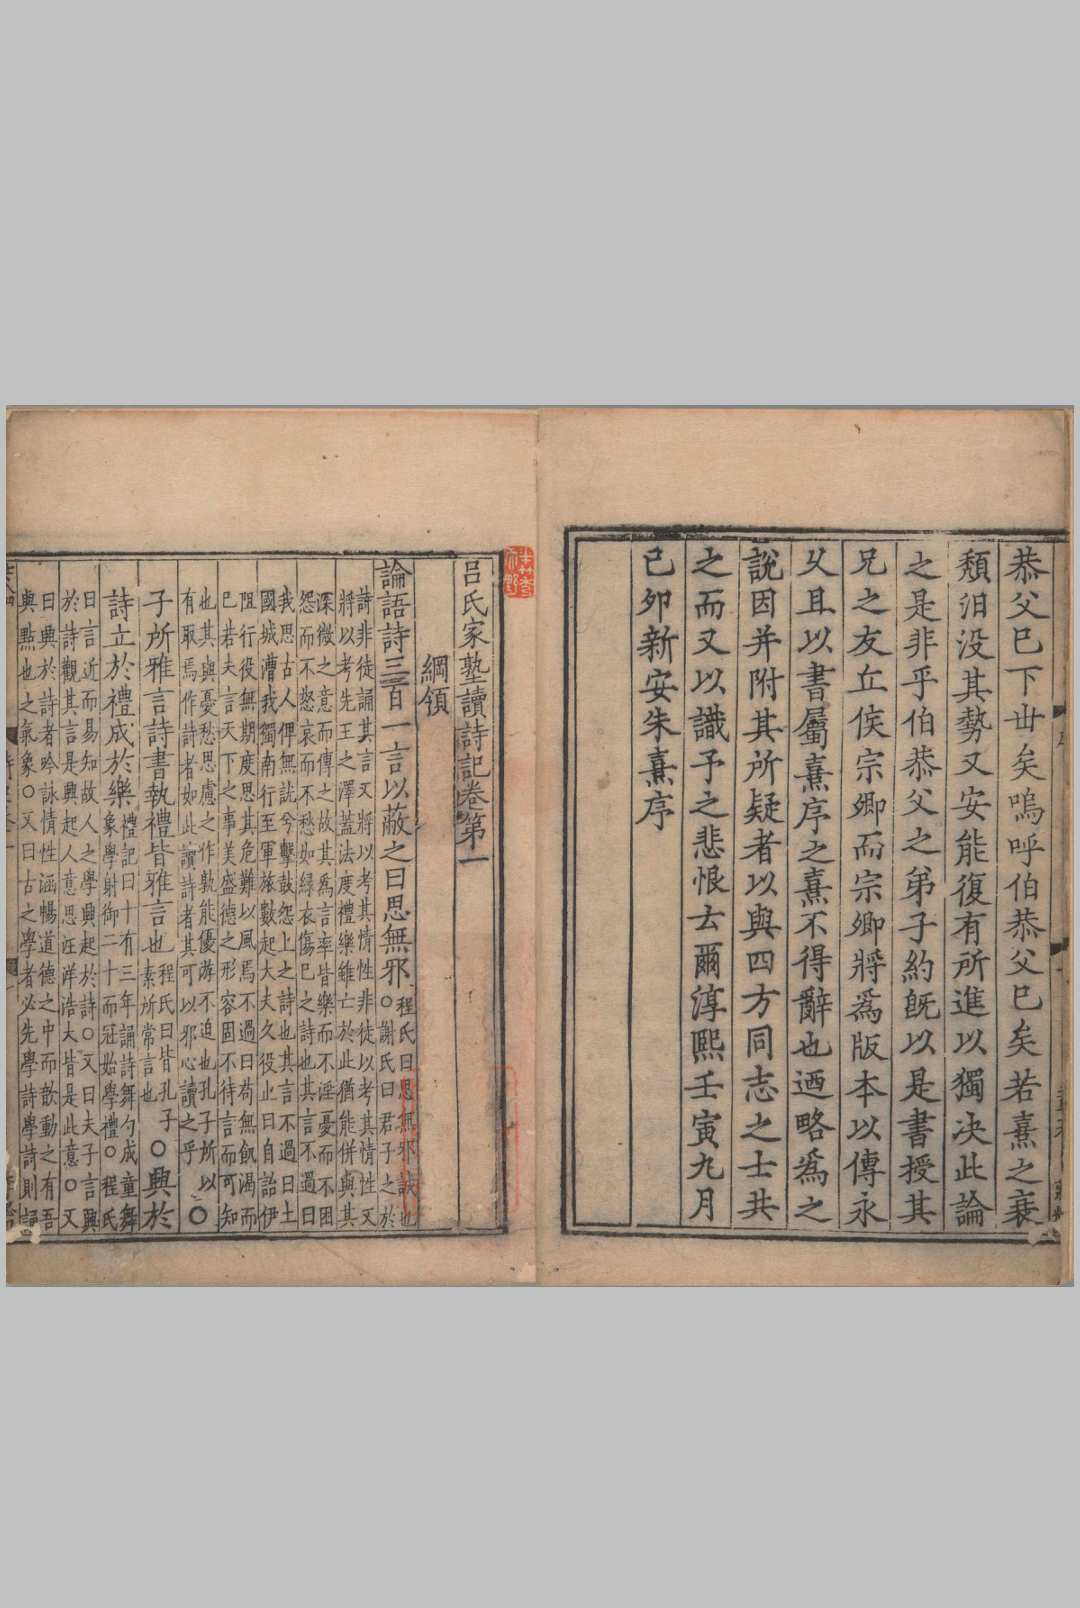 恭父已下世矣嗚呼伯恭父已矣若熹之衰
頽汩没其勢又安能復有所進以獨決此論
之是非乎伯恭父之弟子約既以是書授其
兄之友丘侯宗卿而宗卿將爲版本以傳永
久且以書屬熹序之熹不得辭也迺略爲之
說因并附其所疑者以與四方同志之士共
之而又以識予之悲恨云爾淳熙壬寅九月
己卯新安朱熹序
呂氏家塾讀詩記卷第一
綱領
論語詩三百一言以蔽之曰思無邪
程氏曰思無邪誠也
○謝氏曰君子之於
詩非徒誦其言又將以考其情性非徒以考其情性又
將以考先王之澤蓋法度禮樂雖亡於此猶能併與其
深微之意而傳之故其爲言率皆樂而不淫憂而不困
怨而不怒哀而不愁如緑衣傷己之詩也其言不過曰
我思古人俾無訧兮擊鼓怨上之詩也其言不過曰土
國城漕我獨南行至軍旅數起大夫久役止曰自詒伊
阻行役無期度思其危難以風焉不過曰苟無飢渴而
已若夫言天下之事美盛德之形容固不待言而可知
也其與憂愁思慮之作孰能優游不迫也孔子所以
有取焉作詩者如此讀詩者其可以邪心讀之乎
○
子所雅言詩書執禮皆雅言也
程氏曰皆孔子
素所常言也
○興於
詩立於禮成於樂
禮記曰十有三年誦詩舞勺成童舞
象學射御二十而冠始學禮○程氏
曰言近而易知故人之學興起於詩○又曰夫子言興
於詩觀其言是興起人意思汪洋浩大皆是此意○又
曰興於詩者吟詠情性涵暢道德之中而歆動之有吾
與點也之氣象○又曰古之學者必先學詩學詩則誦